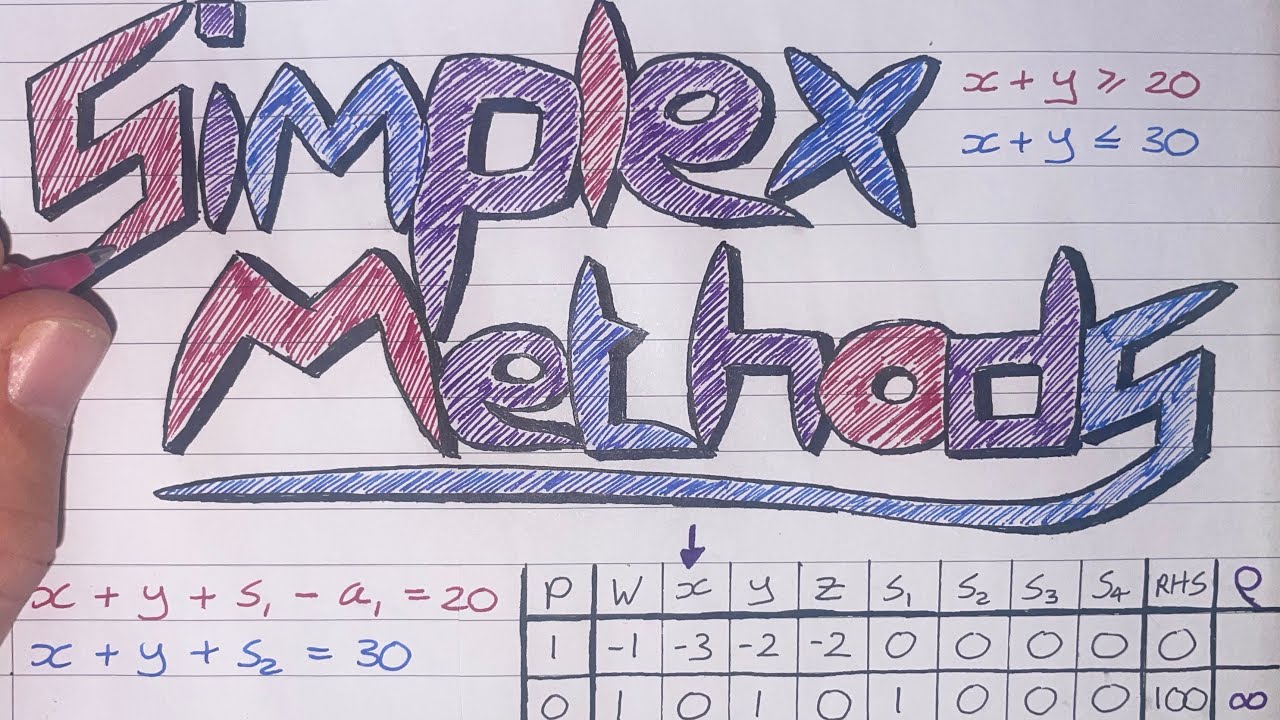 Simplex
Methods
x + y ≥ 20
x + y ≤ 30
x + y + s₁ - a₁ = 20
x + y + s₂ = 30
P W x y z s₁ s₂ s₃ s₄ RHS ρ
1 -1 -3 -2 -2 0 0 0 0 0
0 1 0 1 0 1 0 0 0 100 ∞